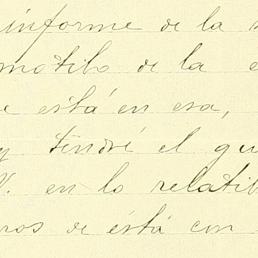 informe de la
motibo de la
está en esa,
y tendré el gu
V. en lo relatib
ros de ésta con